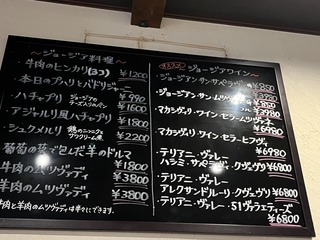 ～ジョージア料理～
・牛肉のヒンカリ(3コ) ¥1200
・本日のプハリとバドリジャーニ ¥980
・ハチャプリ ジョージアのチーズ入りのパン ¥1600
・アジャルリ風ハチャプリ ¥1800
・シュクメルリ 鶏のニンニクとサワクリーム煮 ¥2200
・葡萄の葉で包んだ羊のドルマ ¥1800
牛肉のムツヴァディ ¥3800
羊肉のムツヴァディ ¥3800
ジョージアワイン～
・ジョージアン・サン・サペラヴィ ¥850
・ジョージアン・サン・ムツヴァネ
¥850
¥3980
・マカシヴィリ・ワイン・セラー
¥3980
・マカシヴィリ・ワイン・セラー・ヒフヴィ
¥6980
・テリアニ・ヴァレー
・テリアニ・ヴァレー
アレクサンドルーリ・クヴェヴリ ¥6800
・テリアニ・ヴァレー・51ヴァラエティーズ
¥6800